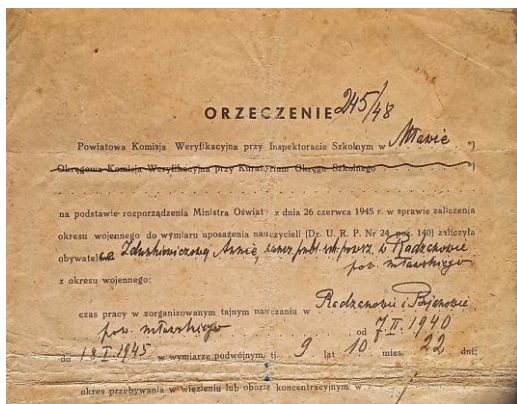 ORZECZENIE 245/48
Powiatowa Komisja Weryfikacyjna przy Inspektoracie Szkolnym w Mławie *)
Okręgowa Komisja Weryfikacyjna przy Kuratorium Okręgu Szkolnego *)
na podstawie rozporządzenia Ministra Oświaty z dnia 26 czerwca 1945 r. w sprawie zaliczenia
okresu wojennego do wymiaru uposażenia nauczycieli (Dz. U. R. P. Nr 24, poz. 140) zaliczyła
obywatel Annie, naucz. publ. szk. powsz. w Radzanowie
pow. mławskiego
z okresu wojennego:
czas pracy w zorganizowanym tajnym nauczaniu w Radzanowie i
pow. mławskiego od 7.II.1940
do 18.I.1945 w wymiarze podwójnym, tj. 9 lat 10 mies. 22 dni;
okres przebywania w więzieniu lub obozie koncentracyjnym w